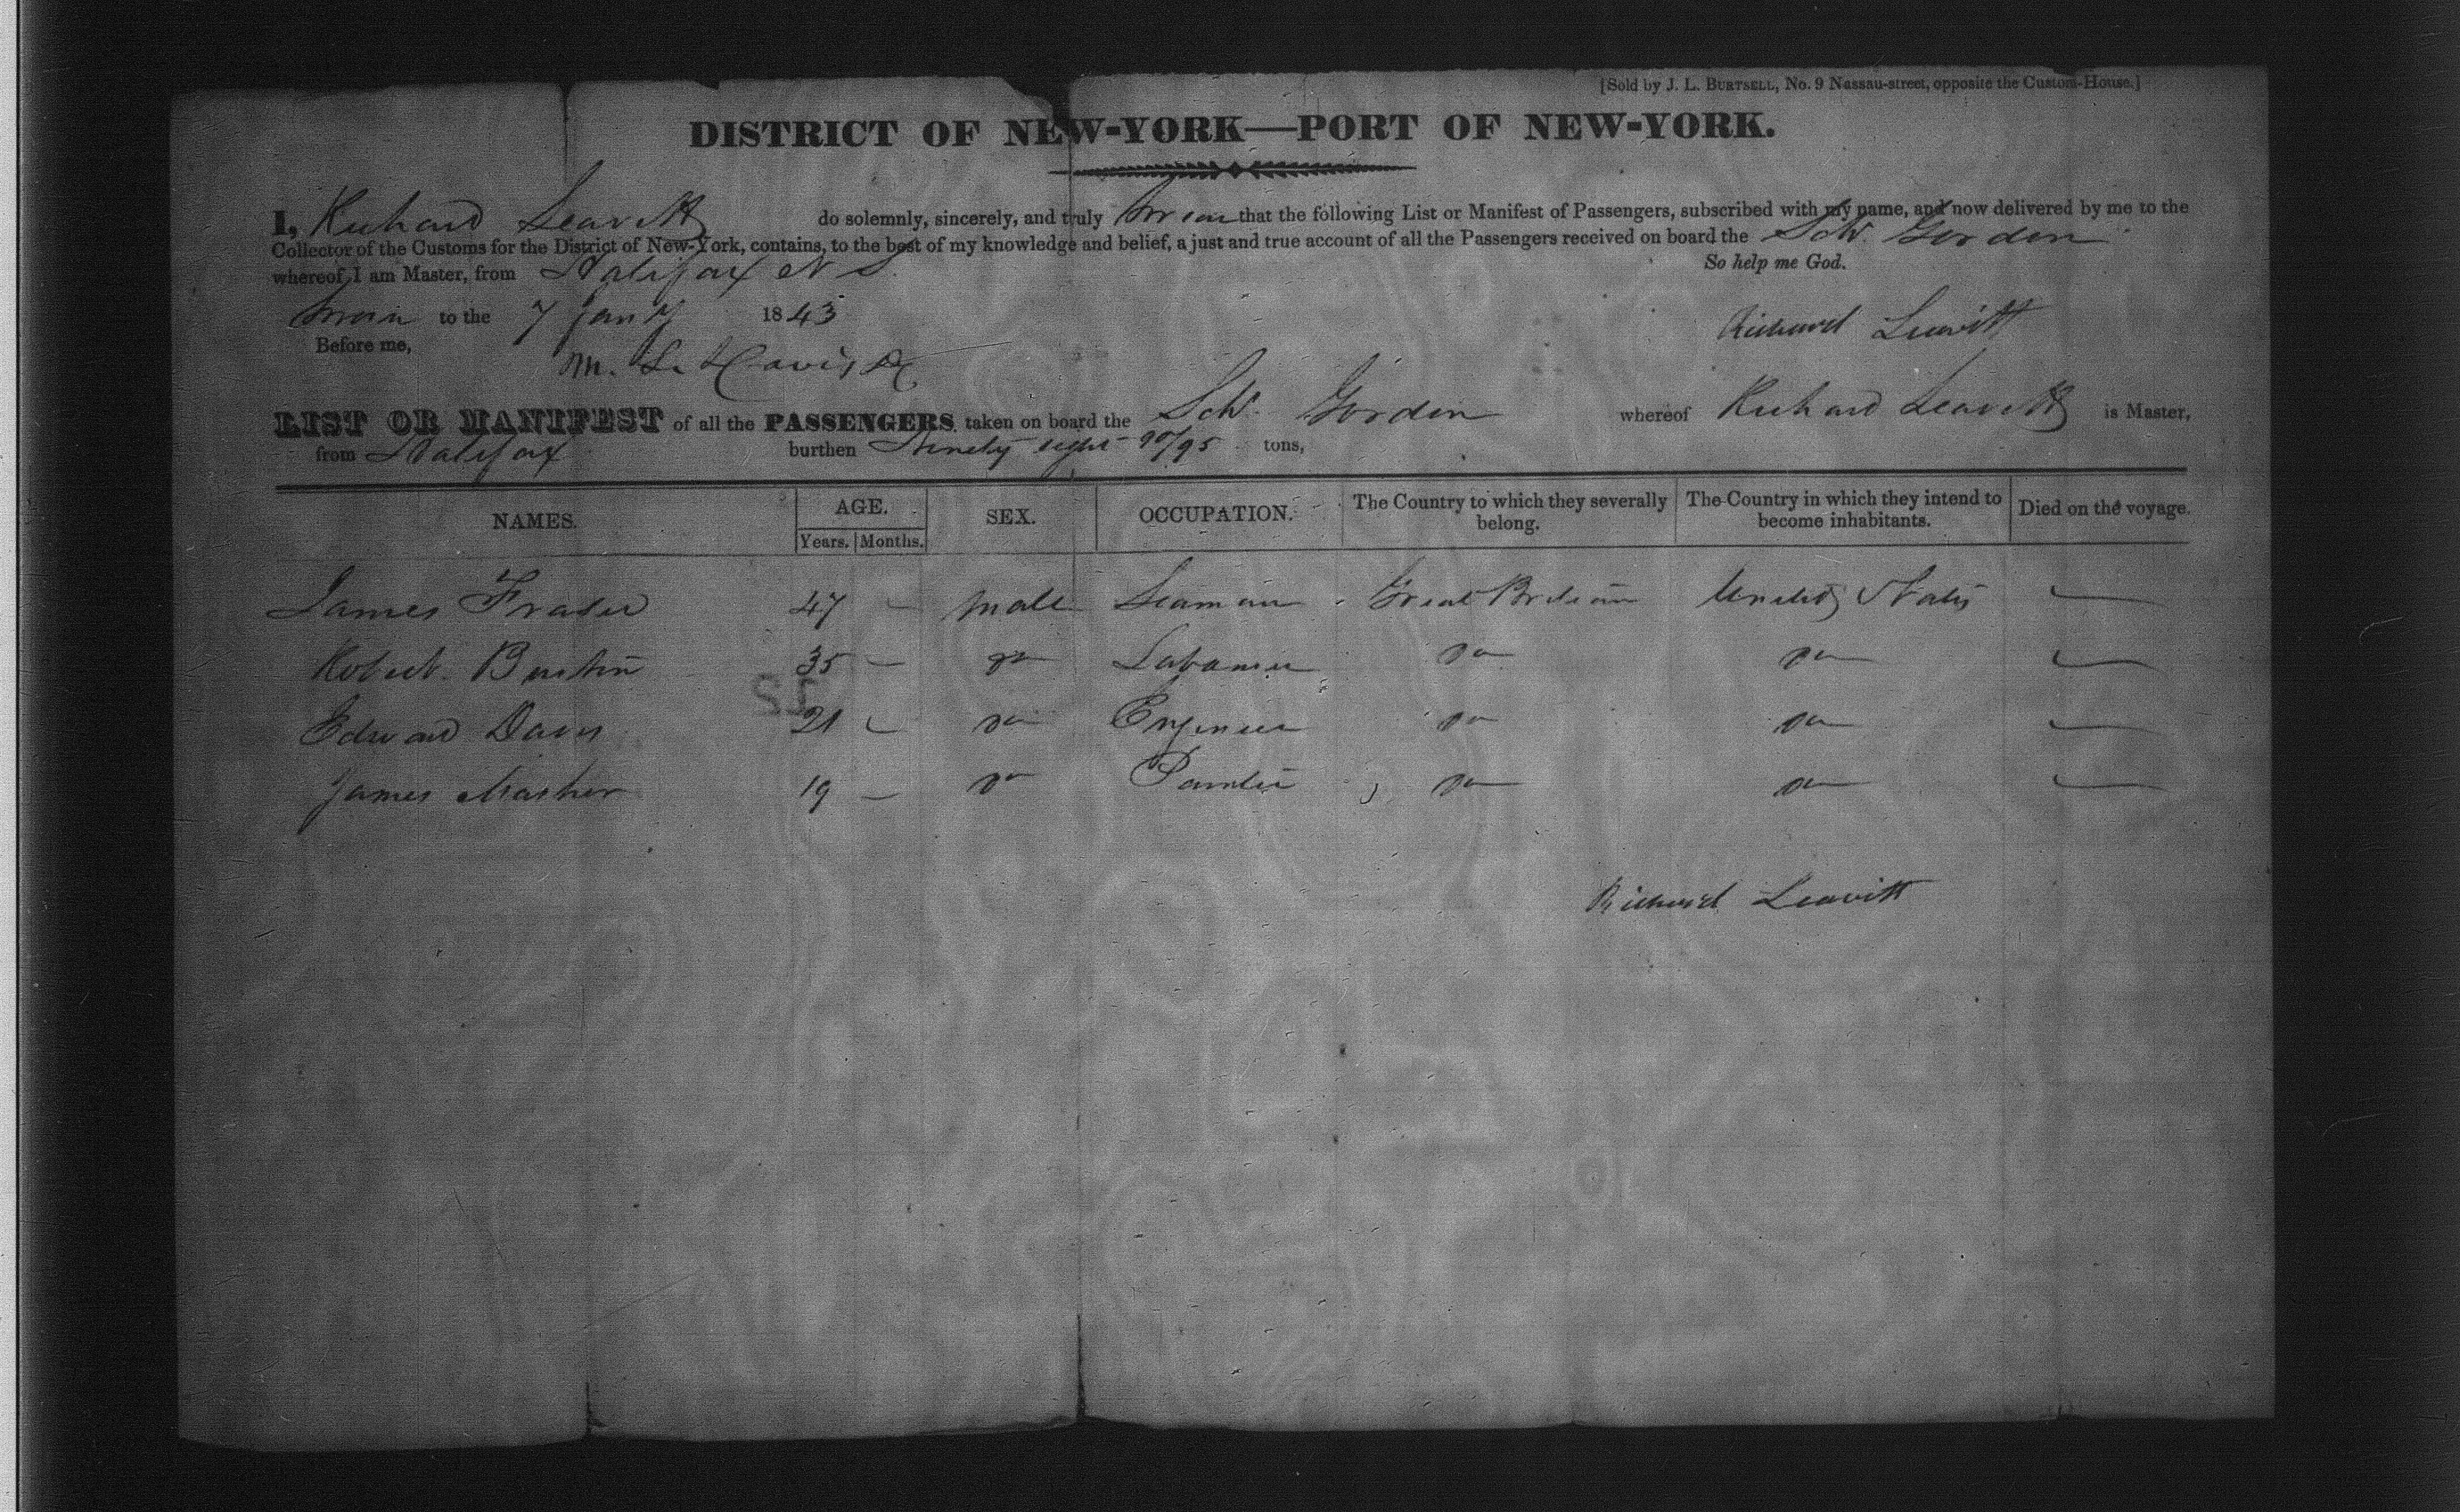 [Sold by J. L. BURTSELL, No. 9 Nassau-street, opposite the Custom-House.]
DISTRICT OF NEW-YORK—PORT OF NEW-YORK.
I, Richard Leavitt do solemnly, sincerely, and truly swear that the following List or Manifest of Passengers, subscribed with my name, and now delivered by me to the
Collector of the Customs for the District of New-York, contains, to the best of my knowledge and belief, a just and true account of all the Passengers received on board the Schr. Gordon
whereof I am Master, from Halifax N S.
So help me God.
Sworn to the 7 Jany 1843
Richard Leavitt
Before me,
M. L. Davis
LIST OR MANIFEST of all the PASSENGERS taken on board the Schr. Gordon whereof Richard Leavitt is Master,
from Halifax burthen Ninety eight 90/95 tons,
NAMES. AGE. SEX. OCCUPATION. The Country to which they severally belong. The Country in which they intend to become inhabitants. Died on the voyage.
Years. Months.
James Fraser 47 — male Seaman Great Britain United States —
Robert 35 — do Labourer do do —
Edward Davis 21 — do Engineer do do —
James 19 — do Painter do do —
Richard Leavitt